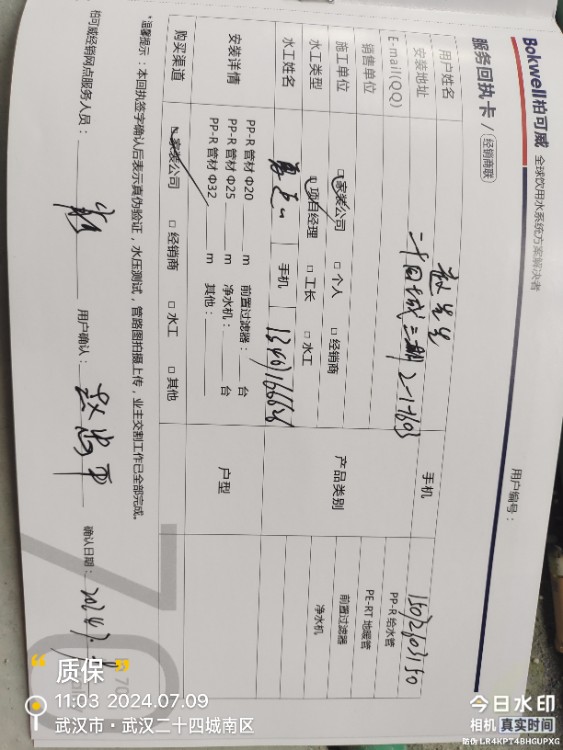 Bokwell柏可威 全球饮用水系统方案解决者
服务回执卡 / 经销商联
用户编号：
用户姓名 赵先生 手机
安装地址 二十四城三期2-1-1603
E-mail(QQ)
销售单位
施工单位 □家装公司 □个人 □经销商
水工类型 □项目经理 □工长 □水工
水工姓名 手机
产品类别 PP-R 给水管
PE-RT 地暖管
前置过滤器
净水机
安装详情 PP-R 管材 Φ20 m 前置过滤器： 台
PP-R 管材 Φ25 m 净水机： 台
PP-R 管材 Φ32 m 其他：
户型
购买渠道 □家装公司 □经销商 □水工 □其他
*温馨提示：本回执签字确认后表示真伪验证，水压测试，管路图拍摄上传，业主交割工作已全部完成。
柏可威经销网点服务人员： 用户确认： 确认日期： 2024.7.9
70
“质保”
11:03 2024.07.09
武汉市·武汉二十四城南区
今日水印
相机 真实时间
防伪 LR4KPT4BHGUPXG